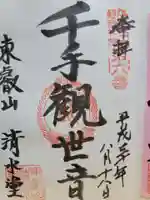 奉拝
平成
八月十八日
千手観世音
東叡山 清水堂